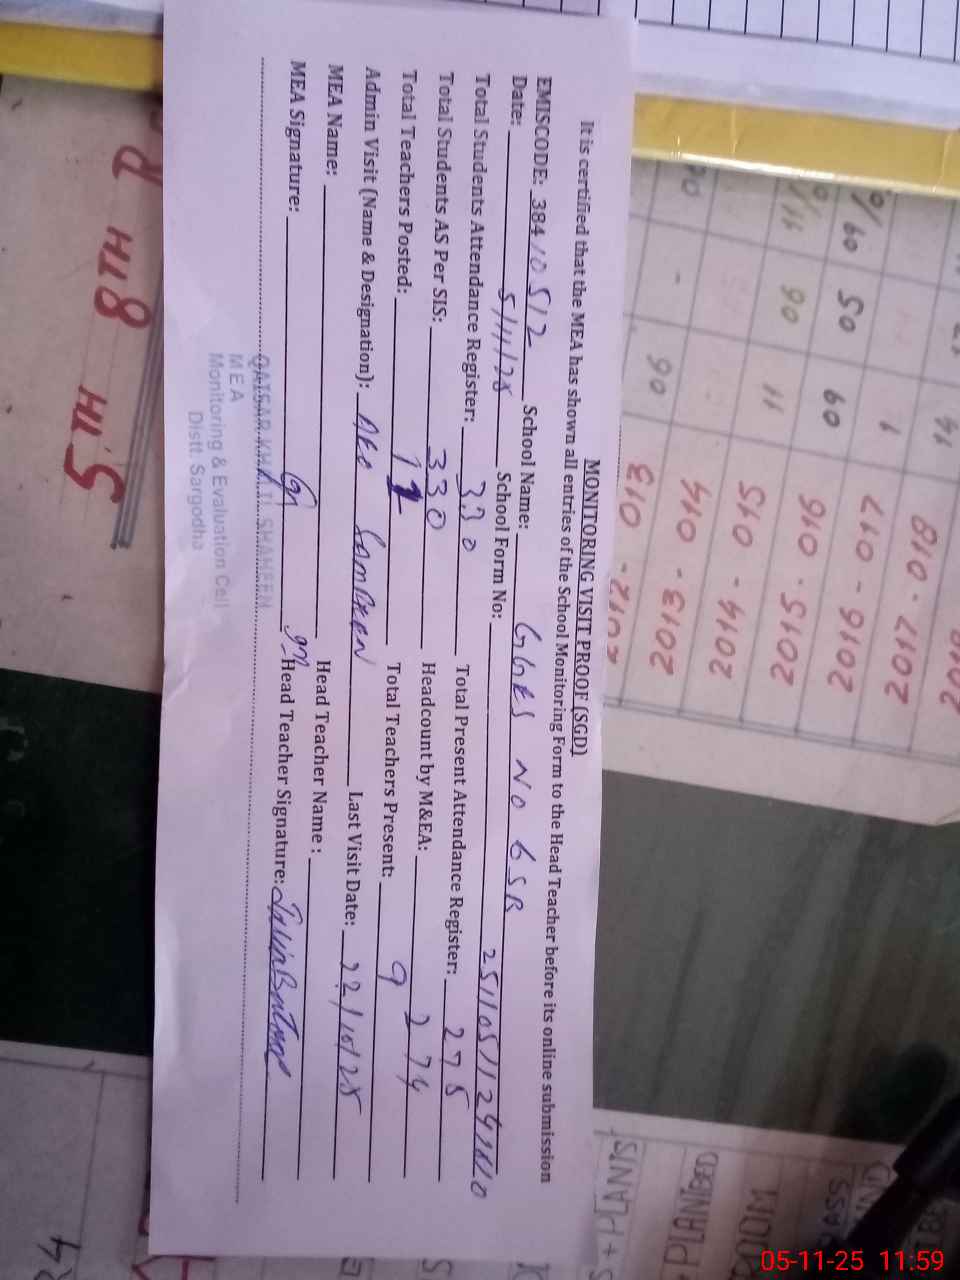 MONITORING VISIT PROOF (SGD)
It is certified that the MEA has shown all entries of the School Monitoring Form to the Head Teacher before its online submission
EMISCODE: 38410512 School Name: GGES NO 6 SR
Date: 5/11/25 School Form No:
Total Students Attendance Register: 330 Total Present Attendance Register: 275
Total Students AS Per SIS: 330 Headcount by M&EA: 274
Total Teachers Posted: 11 Total Teachers Present: 9
Admin Visit (Name & Designation): AEO Last Visit Date: 22/10/25
MEA Name: Head Teacher Name :
MEA Signature: Head Teacher Signature:
QAISAR KHALIL SHAHEEN
MEA
Monitoring & Evaluation Cell
Distt. Sargodha
2017 - 018
2016 - 017
2015 - 016
2014 - 015
2013 - 014
2012 - 013
60 50 60
90 11
90
05-11-25 11:59